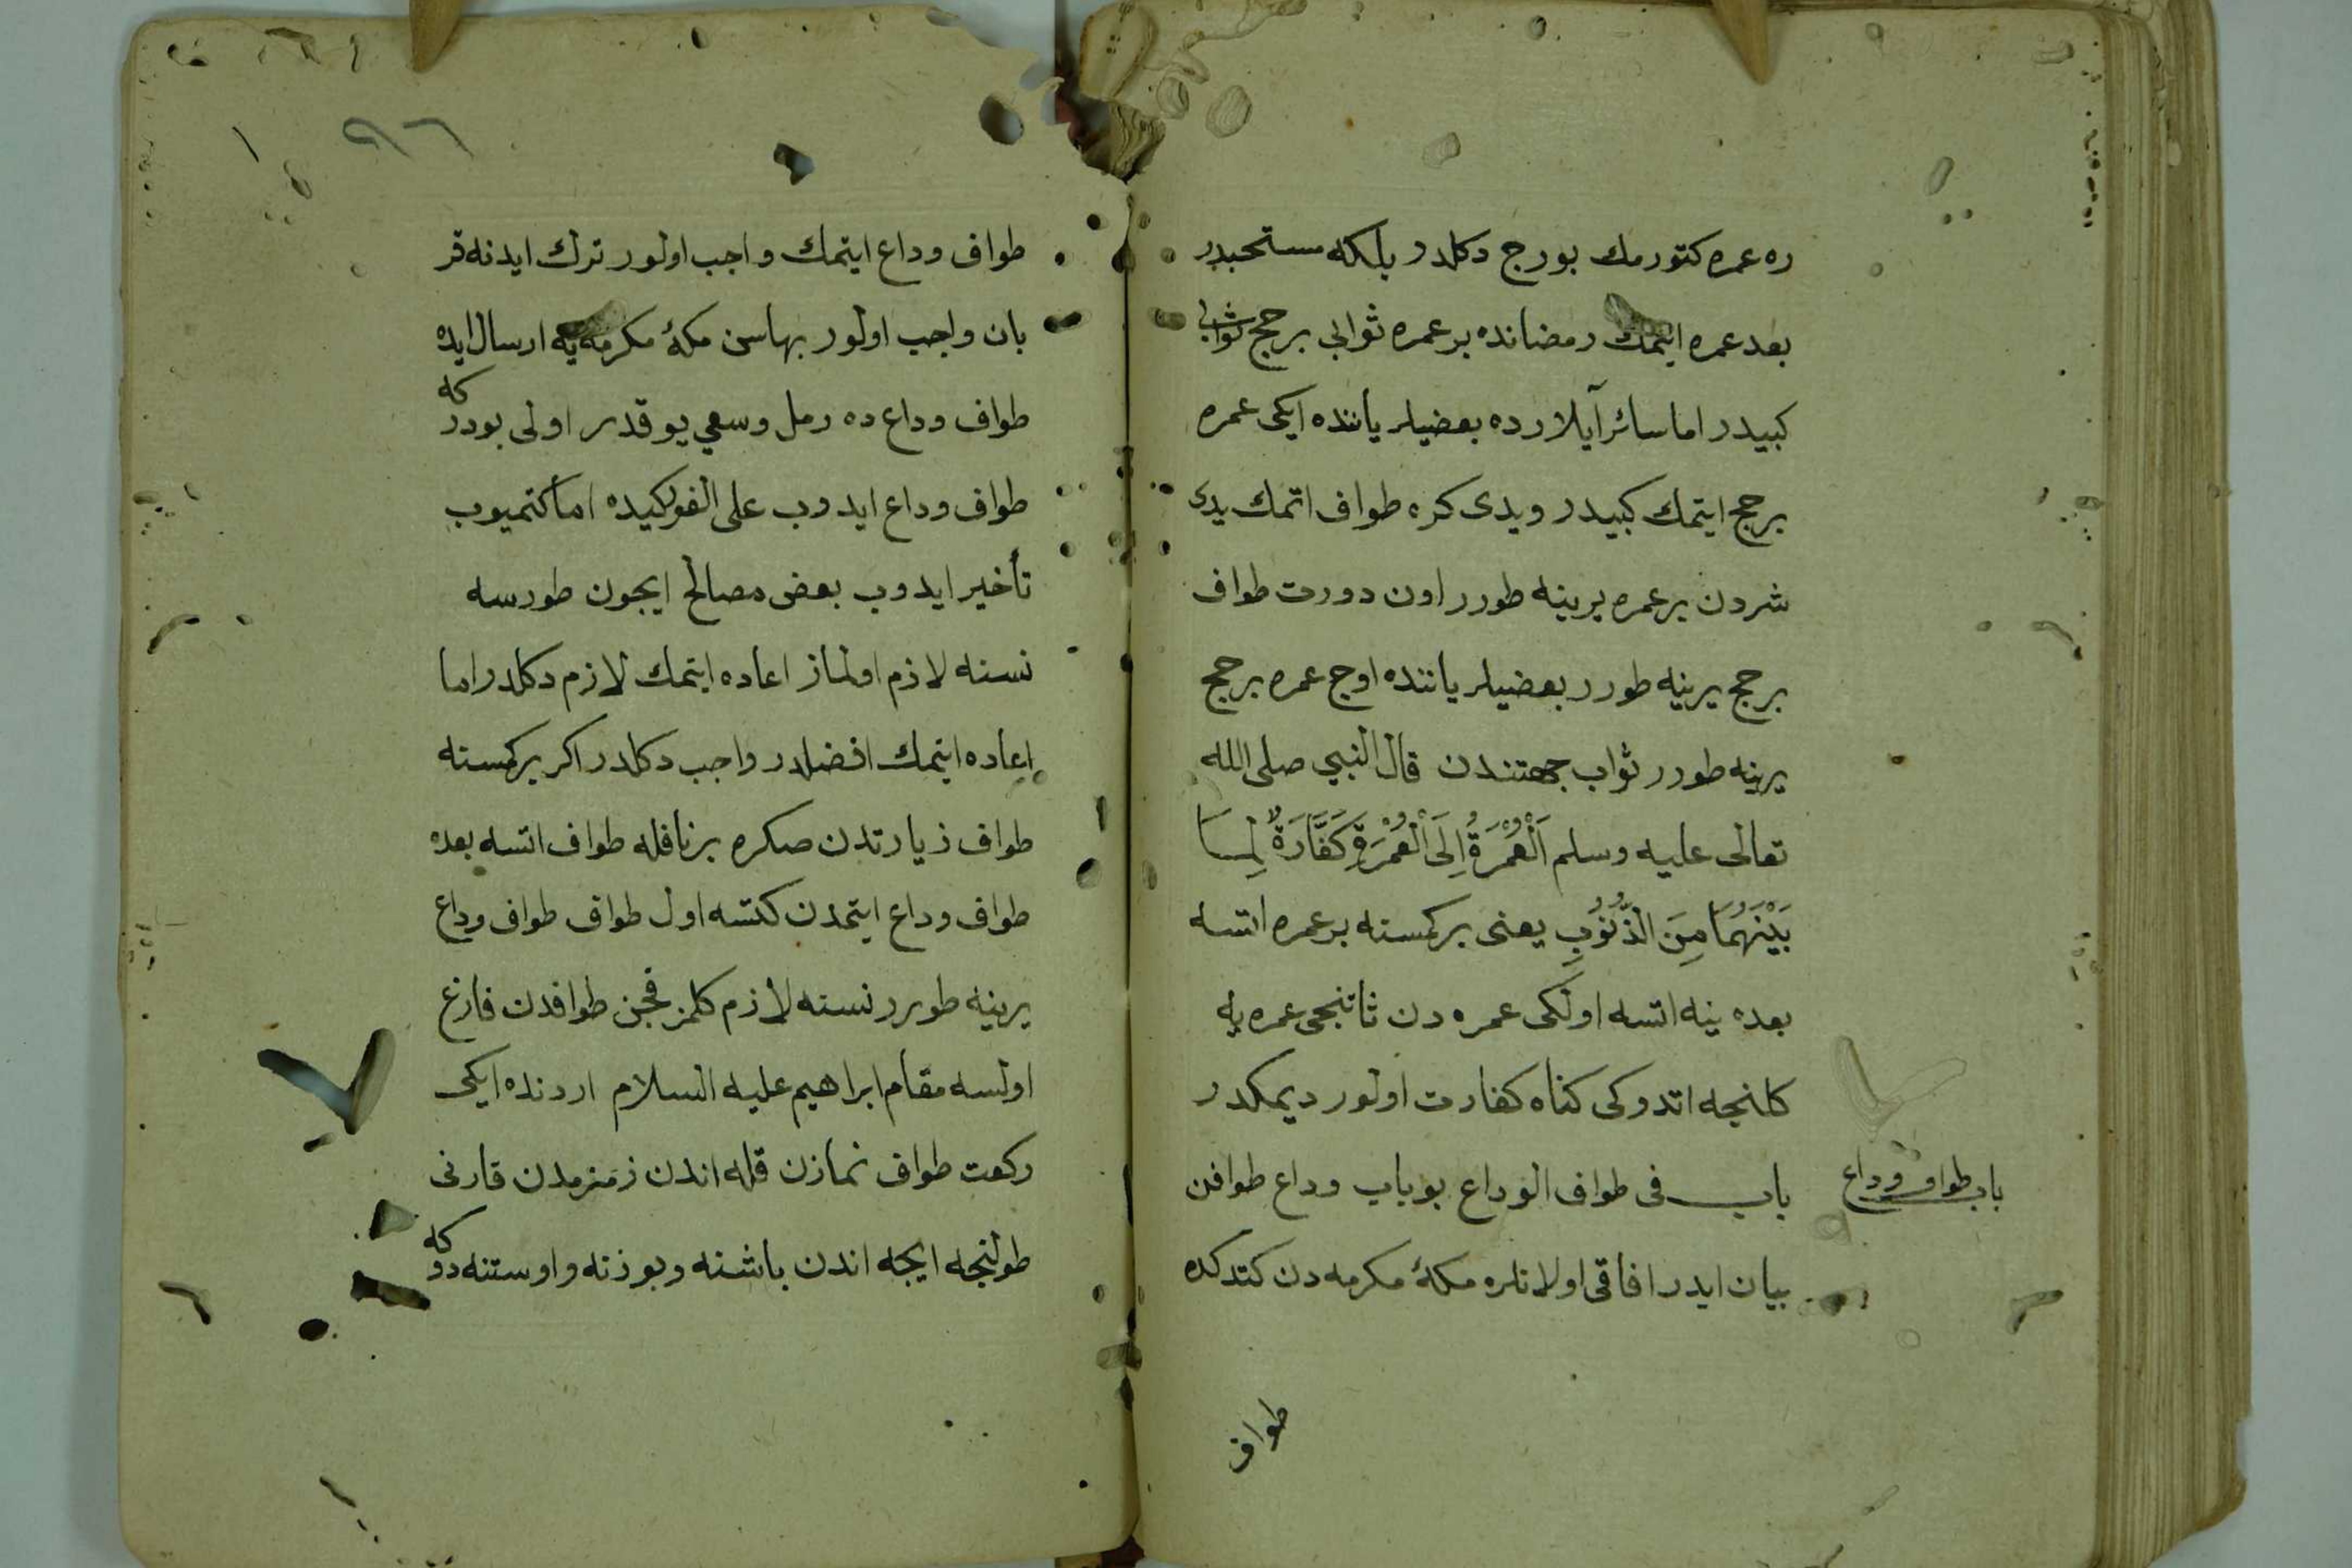 ره عمره كتورمك بورج دكلدر بلكه مستحبدر
بعد عمره ايتمك رمضانده بر عمره ثوابى بر حج ثوابى
كبيدر اما سائر آيلارده بعضيلر ياننده ايكى عمره
بر حج ايتمك كبيدر ويدى كره طواف اتمك يدى
شردن بر عمره يرينه طورر اون دورت طواف
بر حج يرينه طورر بعضيلر ياننده اوج عمره بر حج
يرينه طورر ثواب جهتندن قال النبي صلى الله
تعالى عليه وسلم اَلْعُمْرَةُ اِلَى الْعُمْرَةِ كَفَّارَةٌ لِمَا
بَيْنَهُمَا مِنَ الذُّنُوْبِ يعنى بر كمسنه بر عمره اتسه
بعده ينه اتسه اولكى عمره دن ثاتنجى عمره يه
كلنجه اتدوكى كناه كفارت اولور ديمكدر
باب طواف وداع
باب فى طواف الوداع بو باب وداع طوافن
بيان ايدر افاقى اولانلره مكۀ مكرمه دن كتدكده
طواف
٩٦
طواف وداع ايتمك واجب اولور ترك ايدنه قر
بان واجب اولور بهاسن مكۀ مكرمه يه ارسال ايده
طواف وداع ده رمل وسعي يوقدر اولى بودر كه
طواف وداع ايدوب على الفور كيده اما كتميوب
تأخير ايدوب بعض مصالح ايجون طورسه
نسنه لازم اولماز اعاده ايتمك لازم دكلدر اما
اعاده ايتمك افضلدر واجب دكلدر اكر بر كمسنه
طواف زيارتدن صكره بر نافله طواف اتسه بعده
طواف وداع ايتمدن كتسه اول طواف طواف وداع
يرينه طورر نسنه لازم كلمز قچن طوافدن فارغ
اولسه مقام ابراهيم عليه السلام اردنده ايكى
ركعت طواف نمازن قله اندن زمزمدن قارنى
طولنجه ايچه اندن باشنه و يوزنه و اوستنه دوكه